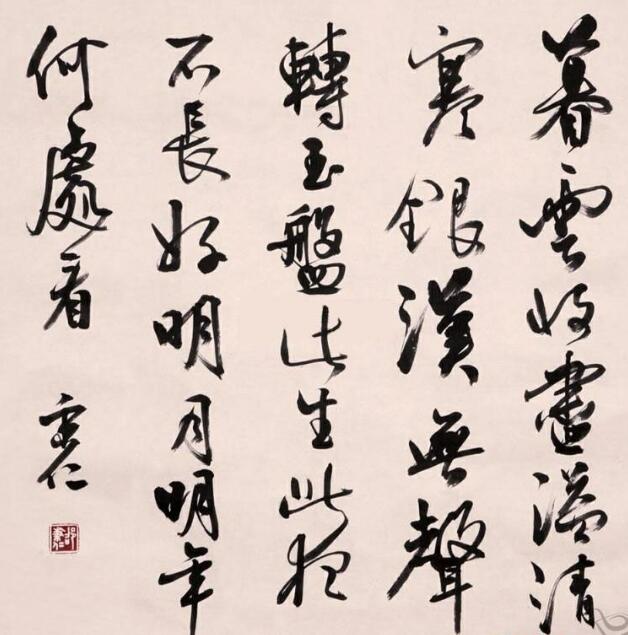 暮雲收盡溢清
寒銀漢無聲
轉玉盤此生此夜
不長好明月明年
何處看
秉仁
邵秉仁